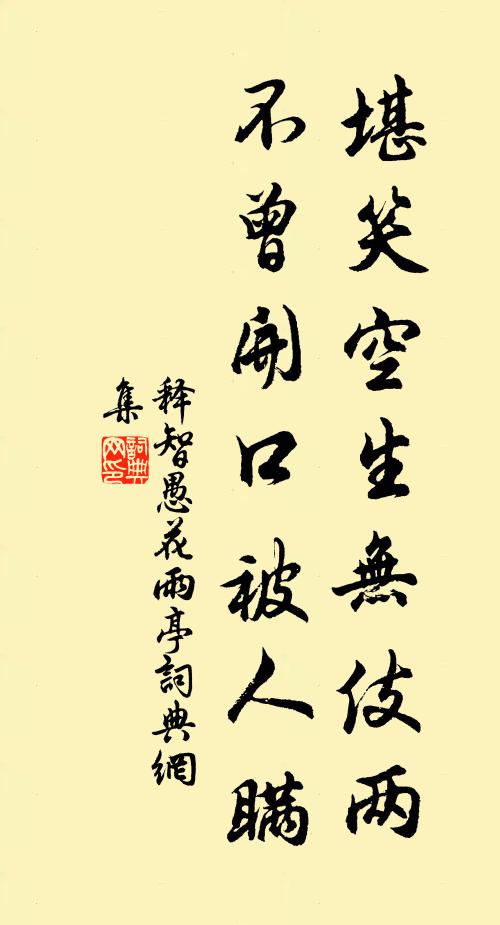 堪笑空生無伎两
不曾開口被人瞞
释智愚花雨亭詞典網
集
詞典
网印